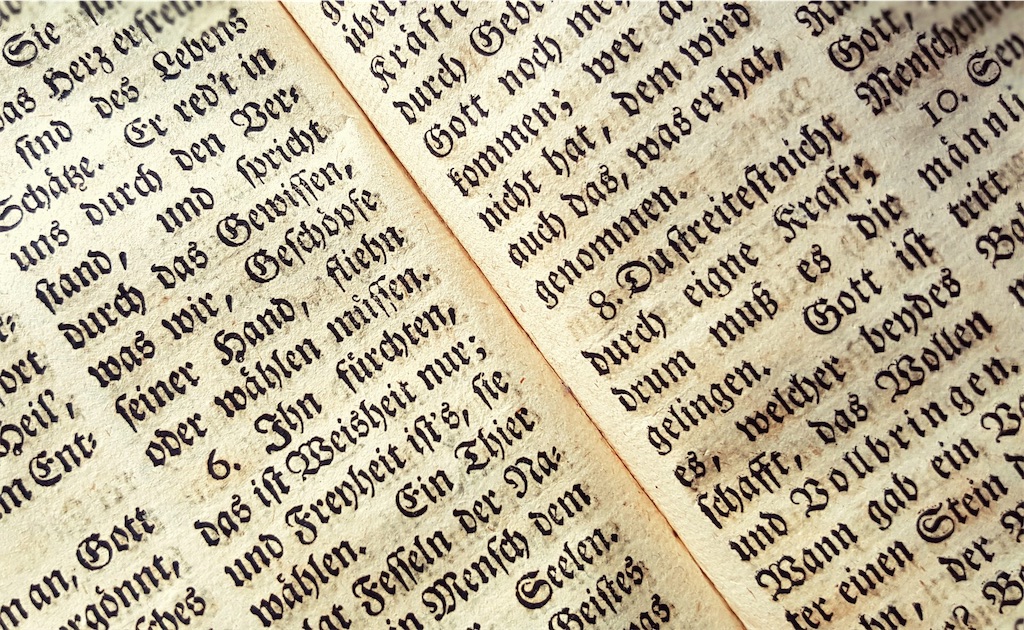 ort
Heil',
m Ent:
man, Gott
rgönnt,
sches
Sie
das Herz erfreun
sind des Lebens
Schätze. Er red't in
uns durch den Ver:
stand, und spricht
durch das Gewissen,
was wir, Geschöpfe
seiner Hand, fliehn
oder wählen müssen.
6. Ihn fürchten,
das ist Weisheit nur;
und Freyheit ist's, sie
wählen. Ein Thier
lgt Fesseln der Na:
in Mensch dem
Seelen.
Geistes
über
Kräfte
durch Gebe
Gott noch meh
kommen; wer da
nicht hat, dem wird
auch das, was er hat,
genommen.
8. Du streitest nicht
durch eigne Kraft;
drum muß es dir
gelingen. Gott ist
es, welcher beydes
schafft, das Wollen
und Vollbringen.
Wann gab ein V
ter einen Stein
der
Gott,
Menschen
10.
männli
tritt